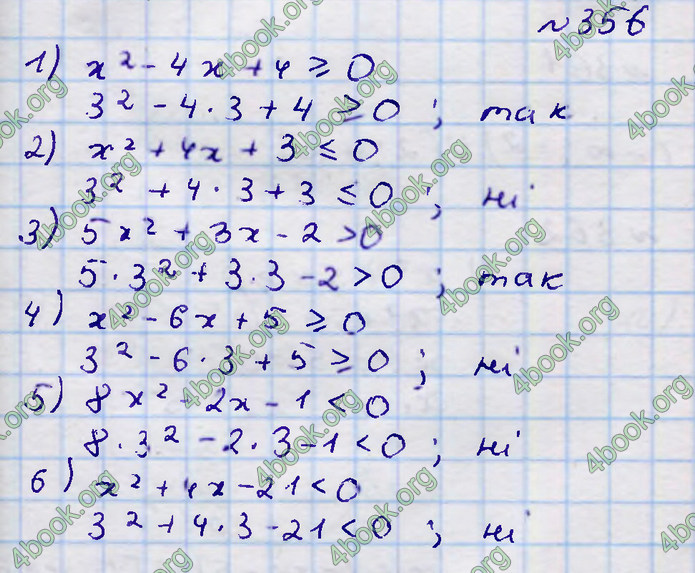 №356
1) x² - 4x + 4 ≥ 0
3² - 4·3 + 4 ≥ 0 ; так
2) x² + 4x + 3 ≤ 0
3² + 4·3 + 3 ≤ 0 ; ні
3) 5x² + 3x - 2 > 0
5·3² + 3·3 - 2 > 0 ; так
4) x² - 6x + 5 ≥ 0
3² - 6·3 + 5 ≥ 0 ; ні
5) 8x² - 2x - 1 < 0
8·3² - 2·3 - 1 < 0 ; ні
6) x² + 4x - 21 < 0
3² + 4·3 - 21 < 0 ; ні
4book.org